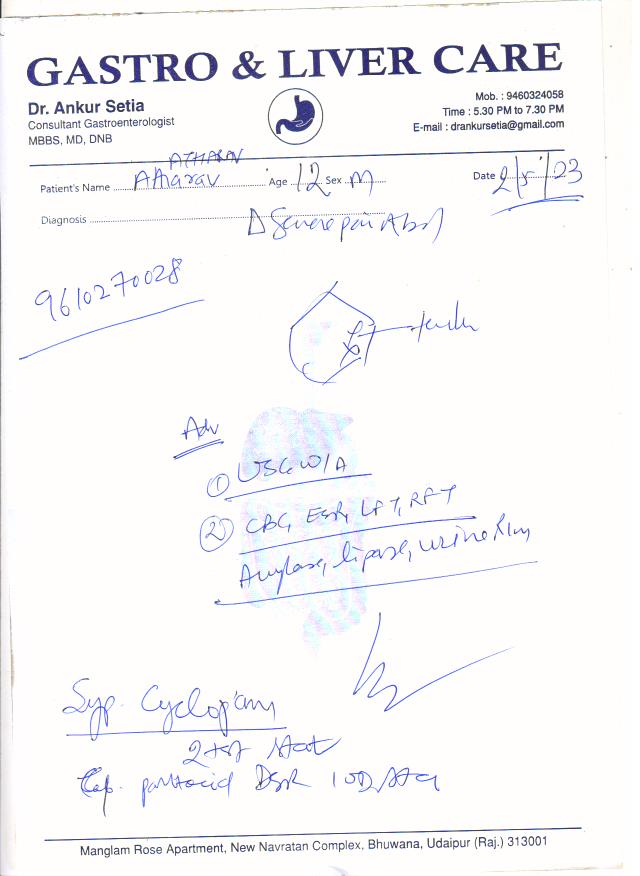 GASTRO & LIVER CARE
Dr. Ankur Setia
Consultant Gastroenterologist
MBBS, MD, DNB
Mob. : 9460324058
Time : 5.30 PM to 7.30 PM
E-mail : drankursetia@gmail.com
ATHARAV
Patient's Name Atharav Age 12 Sex M Date 2/5/23
Diagnosis Δ Severe pain Abd
9610270028
Adv
① USG W/A
② CBC, ESR, LFT, RFT
Amylase, lipase, urine R/m
Syp. Cyclopam
2 tsf stat
Cap. pantocid DSR 1 OD
Manglam Rose Apartment, New Navratan Complex, Bhuwana, Udaipur (Raj.) 313001